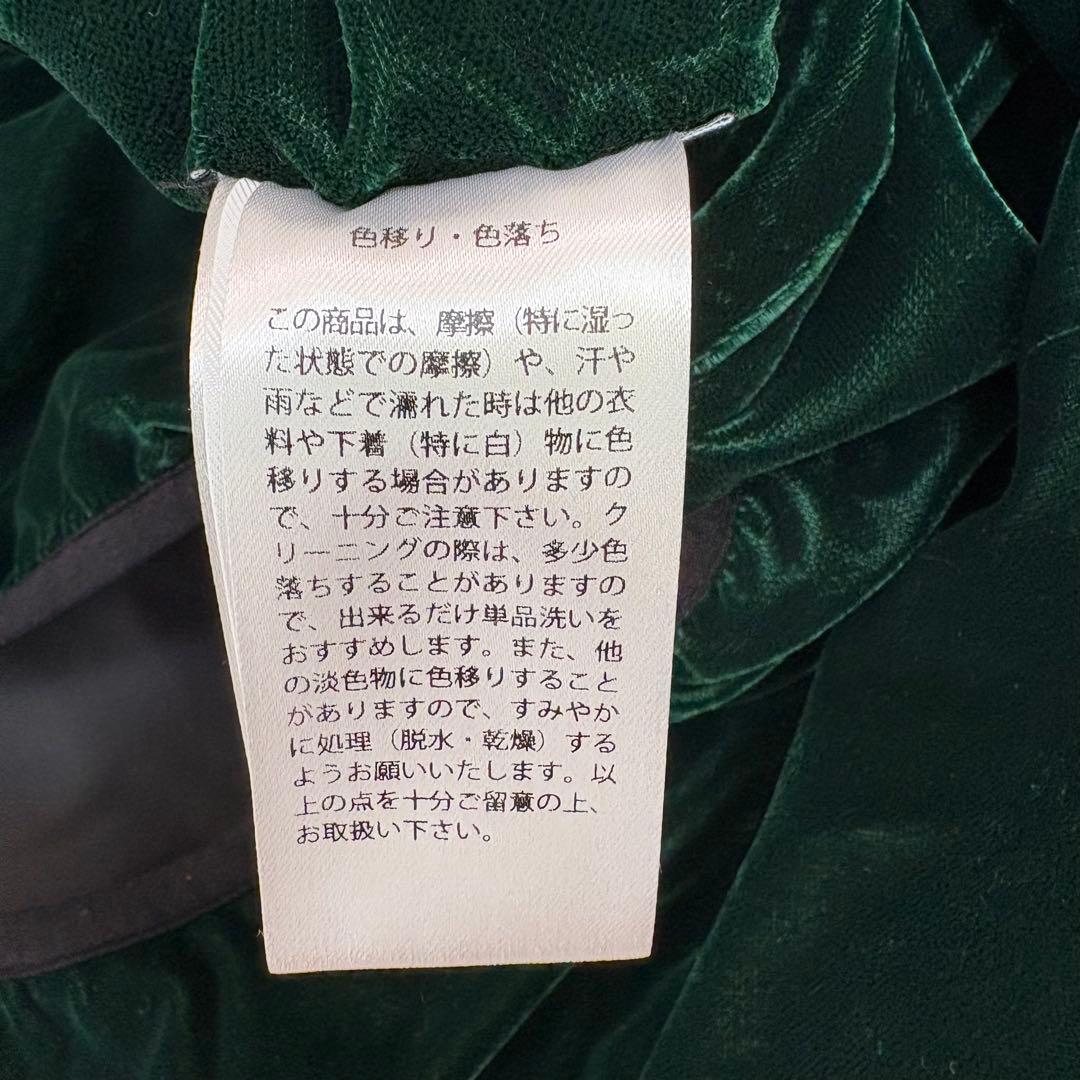 色移り・色落ち
この商品は、摩擦（特に湿っ
た状態での摩擦）や、汗や
雨などで濡れた時は他の衣
料や下着（特に白）物に色
移りする場合がありますの
で、十分ご注意下さい。ク
リーニングの際は、多少色
落ちすることがありますの
で、出来るだけ単品洗いを
おすすめします。また、他
の淡色物に色移りすること
がありますので、すみやか
に処理（脱水・乾燥）する
ようお願いいたします。以
上の点を十分ご留意の上、
お取扱い下さい。